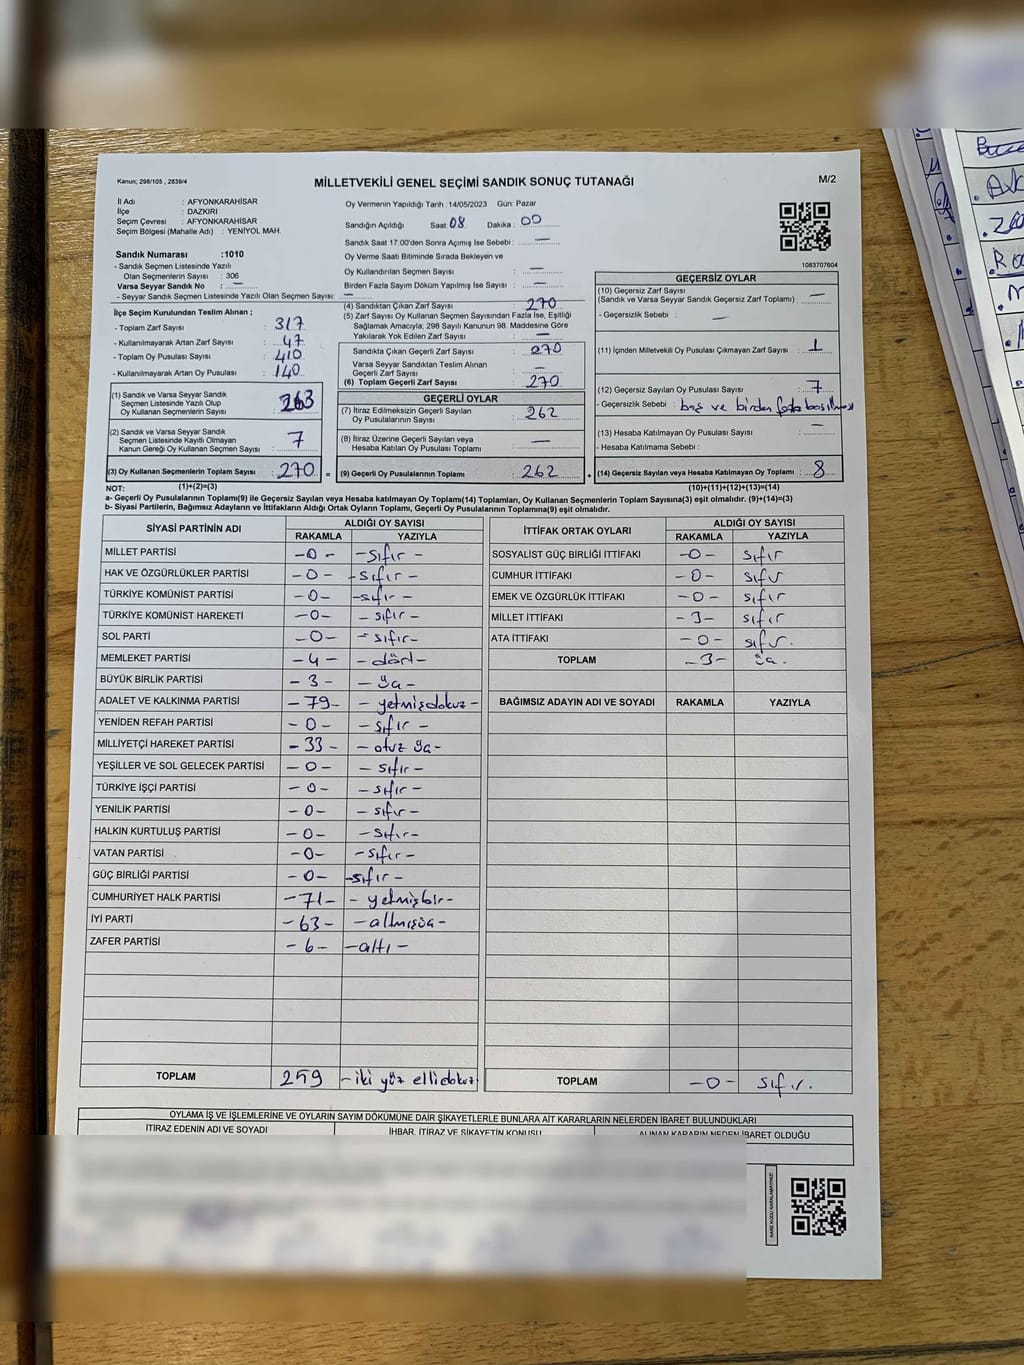 Kanun; 298/105 , 2839/4
MİLLETVEKİLİ GENEL SEÇİMİ SANDIK SONUÇ TUTANAĞI
M/2
İl Adı : AFYONKARAHİSAR
İlçe : DAZKIRI
Seçim Çevresi : AFYONKARAHİSAR
Seçim Bölgesi (Mahalle Adı) : YENİYOL MAH.
Sandık Numarası :1010
- Sandık Seçmen Listesinde Yazılı
Olan Seçmenlerin Sayısı : 306
Varsa Seyyar Sandık No : —
- Seyyar Sandık Seçmen Listesinde Yazılı Olan Seçmen Sayısı: —
Oy Vermenin Yapıldığı Tarih :14/05/2023 Gün: Pazar
Sandığın Açıldığı Saat: 08 Dakika : 00
Sandık Saat 17:00'den Sonra Açımış İse Sebebi : —
Oy Verme Saati Bitiminde Sırada Bekleyen ve
Oy Kullandırılan Seçmen Sayısı : —
Birden Fazla Sayım Döküm Yapılmış İse Sayısı : —
1083707604
İlçe Seçim Kurulundan Teslim Alınan ;
- Toplam Zarf Sayısı : 317
- Kullanılmayarak Artan Zarf Sayısı : 47
- Toplam Oy Pusulası Sayısı : 410
- Kullanılmayarak Artan Oy Pusulası : 140
(1) Sandık ve Varsa Seyyar Sandık
Seçmen Listesinde Yazılı Olup
Oy Kullanan Seçmenlerin Sayısı : 263
(2) Sandık ve Varsa Seyyar Sandık
Seçmen Listesinde Kayıtlı Olmayan
Kanun Gereği Oy Kullanan Seçmen Sayısı : 7
(3) Oy Kullanan Seçmenlerin Toplam Sayısı : 270 =
(1)+(2)=(3)
(4) Sandıktan Çıkan Zarf Sayısı : 270
(5) Zarf Sayısı Oy Kullanan Seçmen Sayısından Fazla İse, Eşitliği
Sağlamak Amacıyla; 298 Sayılı Kanunun 98. Maddesine Göre
Yakılarak Yok Edilen Zarf Sayısı : —
Sandıkta Çıkan Geçerli Zarf Sayısı : 270
Varsa Seyyar Sandıktan Teslim Alınan
Geçerli Zarf Sayısı : —
(6) Toplam Geçerli Zarf Sayısı : 270
GEÇERLİ OYLAR
(7) İtiraz Edilmeksizin Geçerli Sayılan
Oy Pusulalarının Sayısı : 262
(8) İtiraz Üzerine Geçerli Sayılan veya
Hesaba Katılan Oy Pusulası Toplamı : —
(9) Geçerli Oy Pusulalarının Toplamı : 262 +
GEÇERSİZ OYLAR
(10) Geçersiz Zarf Sayısı
(Sandık ve Varsa Seyyar Sandık Geçersiz Zarf Toplamı) : —
- Geçersizlik Sebebi : —
(11) İçinden Milletvekili Oy Pusulası Çıkmayan Zarf Sayısı : 1
(12) Geçersiz Sayılan Oy Pusulası Sayısı : 7
- Geçersizlik Sebebi : boş ve birden fazla basılması
(13) Hesaba Katılmayan Oy Pusulası Sayısı : —
- Hesaba Katılmama Sebebi :
(14) Geçersiz Sayılan veya Hesaba Katılmayan Oy Toplamı : 8
(10)+(11)+(12)+(13)=(14)
NOT:
a- Geçerli Oy Pusulalarının Toplamı(9) ile Geçersiz Sayılan veya Hesaba katılmayan Oy Toplamı(14) Toplamları, Oy Kullanan Seçmenlerin Toplam Sayısına(3) eşit olmalıdır. (9)+(14)=(3)
b- Siyasi Partilerin, Bağımsız Adayların ve İttifakların Aldığı Ortak Oyların Toplamı, Geçerli Oy Pusulalarının Toplamına(9) eşit olmalıdır.
SİYASİ PARTİNİN ADI ALDIĞI OY SAYISI
RAKAMLA YAZIYLA
MİLLET PARTİSİ -0- -sıfır-
HAK VE ÖZGÜRLÜKLER PARTİSİ -0- -sıfır-
TÜRKİYE KOMÜNİST PARTİSİ -0- -sıfır-
TÜRKİYE KOMÜNİST HAREKETİ -0- -sıfır-
SOL PARTİ -0- -sıfır-
MEMLEKET PARTİSİ -4- -dört-
BÜYÜK BİRLİK PARTİSİ -3- -üç-
ADALET VE KALKINMA PARTİSİ -79- -yetmişdokuz-
YENİDEN REFAH PARTİSİ -0- -sıfır-
MİLLİYETÇİ HAREKET PARTİSİ -33- -otuz üç-
YEŞİLLER VE SOL GELECEK PARTİSİ -0- -sıfır-
TÜRKİYE İŞÇİ PARTİSİ -0- -sıfır-
YENİLİK PARTİSİ -0- -sıfır-
HALKIN KURTULUŞ PARTİSİ -0- -sıfır-
VATAN PARTİSİ -0- -sıfır-
GÜÇ BİRLİĞİ PARTİSİ -0- -sıfır-
CUMHURİYET HALK PARTİSİ -71- -yetmişbir-
İYİ PARTİ -63- -altmışüç-
ZAFER PARTİSİ -6- -altı-
TOPLAM 259 -iki yüz ellidokuz-
İTTİFAK ORTAK OYLARI ALDIĞI OY SAYISI
RAKAMLA YAZIYLA
SOSYALİST GÜÇ BİRLİĞİ İTTİFAKI -0- sıfır
CUMHUR İTTİFAKI -0- sıfır
EMEK VE ÖZGÜRLÜK İTTİFAKI -0- sıfır
MİLLET İTTİFAKI -3- sıfır
ATA İTTİFAKI -0- sıfır.
TOPLAM -3- üç.
BAĞIMSIZ ADAYIN ADI VE SOYADI RAKAMLA YAZIYLA
TOPLAM -0- sıfır.
OYLAMA İŞ VE İŞLEMLERİNE VE OYLARIN SAYIM DÖKÜMÜNE DAİR ŞİKAYETLERLE BUNLARA AİT KARARLARIN NELERDEN İBARET BULUNDUKLARI
İTİRAZ EDENİN ADI VE SOYADI İHBAR, İTİRAZ VE ŞİKAYETİN KONUSU ALINAN KARARIN NEDEN İBARET OLDUĞU
KARE KODU KARALAMAYINIZ!